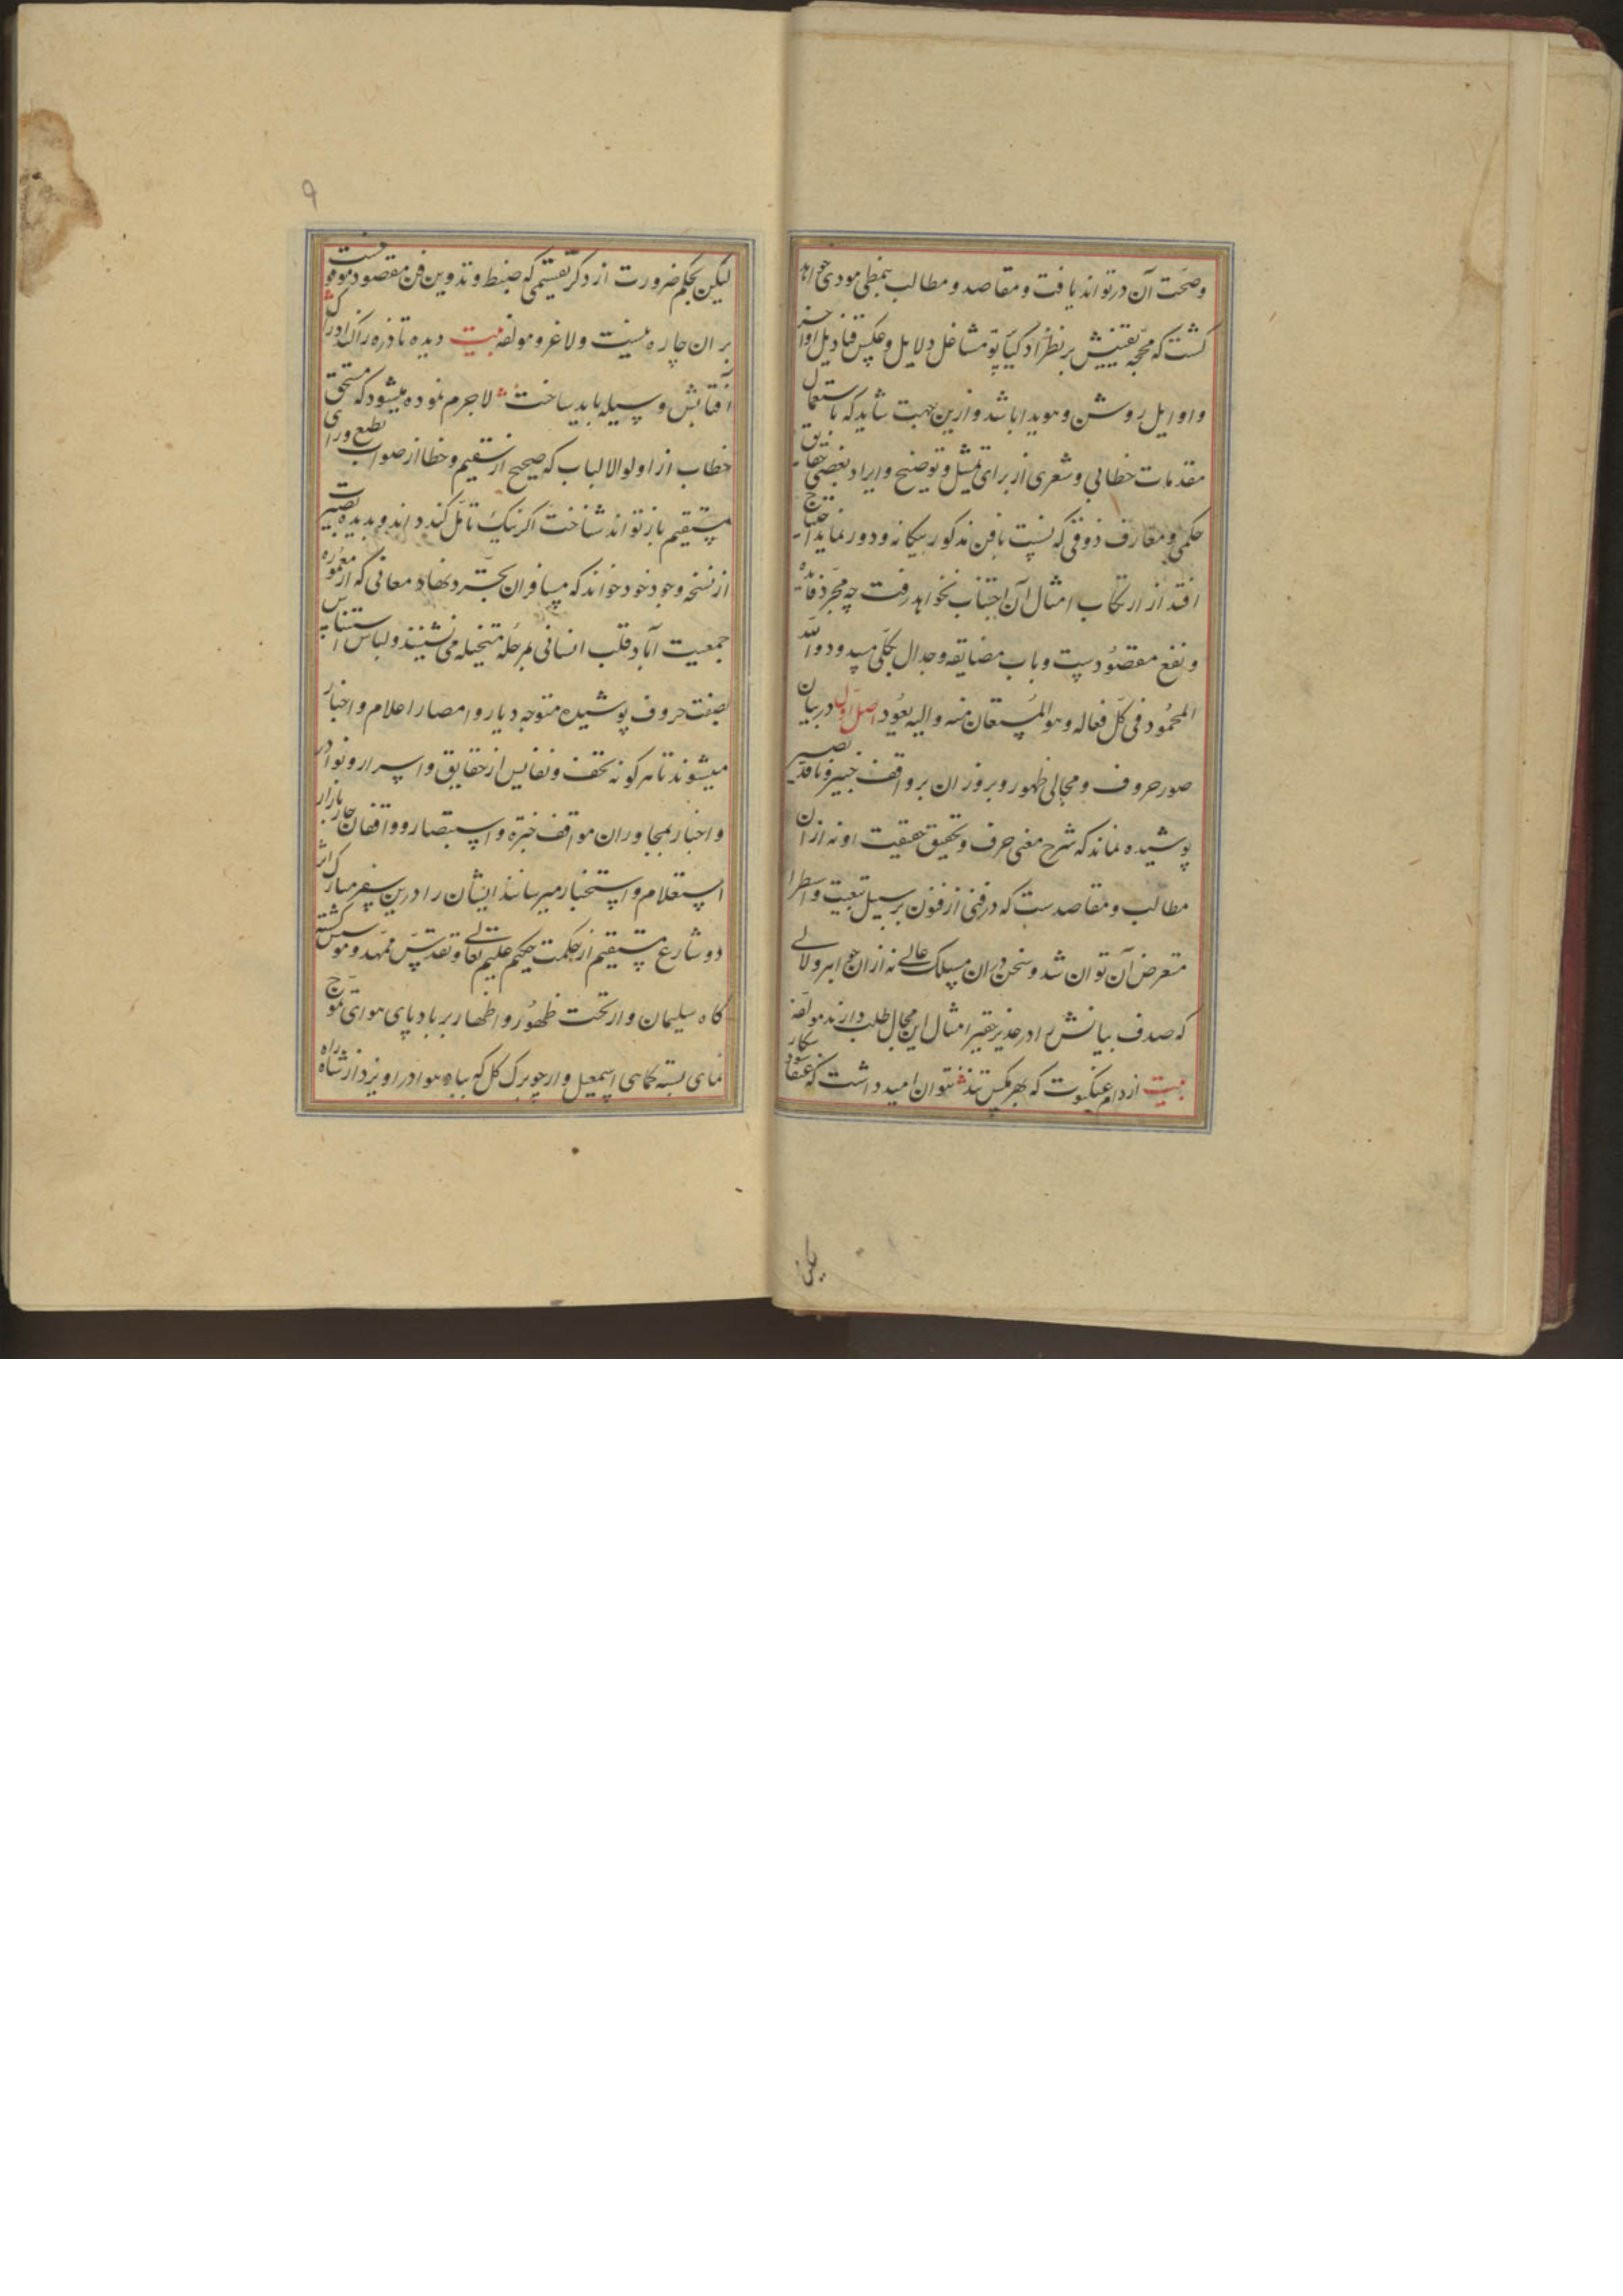 وصحت آن در تواند یافت و مقاصد و مطالب بنمطی مودی خواهد
کشت که محجه تفتیش بر نظر اذکیا پرتو مشاعل دلایل و عکس قنادیل اواخر
و اوایل روشن و هویدا باشد و ازین جهت شاید که باستعمال
مقدمات خطابی و شعری از برای تمثیل و توضیح و ایراد بعضی حقایق
حکمی و معارف ذوقی که نسبت بافن مذکور بیکانه و دور نماید احتیاج
افتد از ارتکاب امثال آن اجتناب نخواهد رفت چه مجرد فایده
و نفع مقصودست و باب مضایقه و جدال بکلی مسدود والله
المحمود فی کل فعاله وهو المستعان منه والیه یعود اصل اول در بیان
صور حروف و مجالی ظهور و بروز ان بر واقف خبیر و ناقد بصیر
پوشیده نماند که شرح معنی حرف و تحقیق حقیقت او نه از ان
مطالب و مقاصدست که در فنی از فنون بر سبیل تبعیت و استطراد
متعرض آن توان شد و سخن دران مسلک عالی نه ازان جواهر و لالی
که صدف بیانش را در غدیر تقریر امثال این مجال طلب دارند مولفه
بیت از دام عنکبوت که بهر مکس تند نتوان امید داشت که عنقا شود شکار
لیکن
۹
لیکن بحکم ضرورت از ذکر تقسیمی که ضبط و تدوین فن مقصود موقوفست
بران چاره نیست ولاغرو مولفه بیت دیده تا ذره را کند ادراک
آفتابش وسیله باید ساخت لاجرم نموده میشود که مستحق
خطاب از اولوالالباب که صحیح از سقیم و خطا از صواب بطبع ورای
مستقیم باز تواند شناخت اکر نیک تامل کند داند و بدیده بصیرت
از نسخه وجود خود خواند که مسافران تجرد نهاد معانی که از معموره
جمعیت آباد قلب انسانی بمرحله متخیله می نشینند و لباس استیناس
بصنعت حروف پوشیده متوجه دیار و امصار اعلام و اخبار
میشوند تا هر کونه تحف و نفایس از حقایق و اسرار و نوادر
و اخبار بمجاوران مواقف خبره و استبصار و واقفان چار بازار
استعلام و استخبار میرسانند ایشان را درین سفر مبارک اثر
دو شارع مستقیم از حکمت حکیم علیم تعالی و تقدس ممهد و موسس کشته
کاه سلیمان وار تخت ظهور و اظهار بر باد پای هوای تموج
نمای بسته کاهی اسمعیل وار چو برک کل که بباد هوا در اویزد از شاه راه